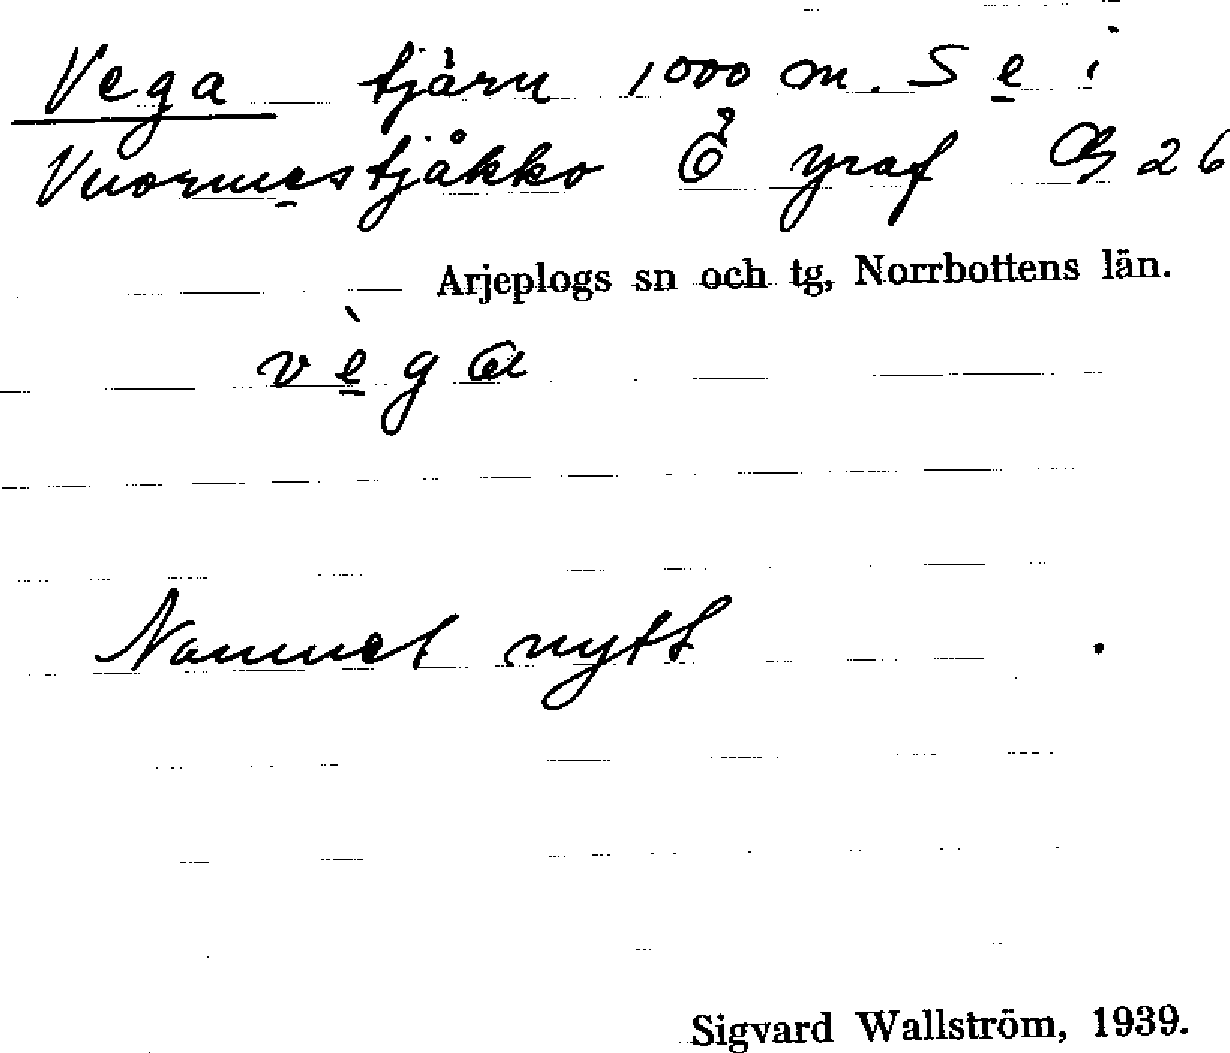 Vega tjärn 1000 m. S e i
Vuornestjåkko Ö graf 26
Arjeplogs sn och tg, Norrbottens län.
v è g a
Namnet nytt.
Sigvard Wallström, 1939.